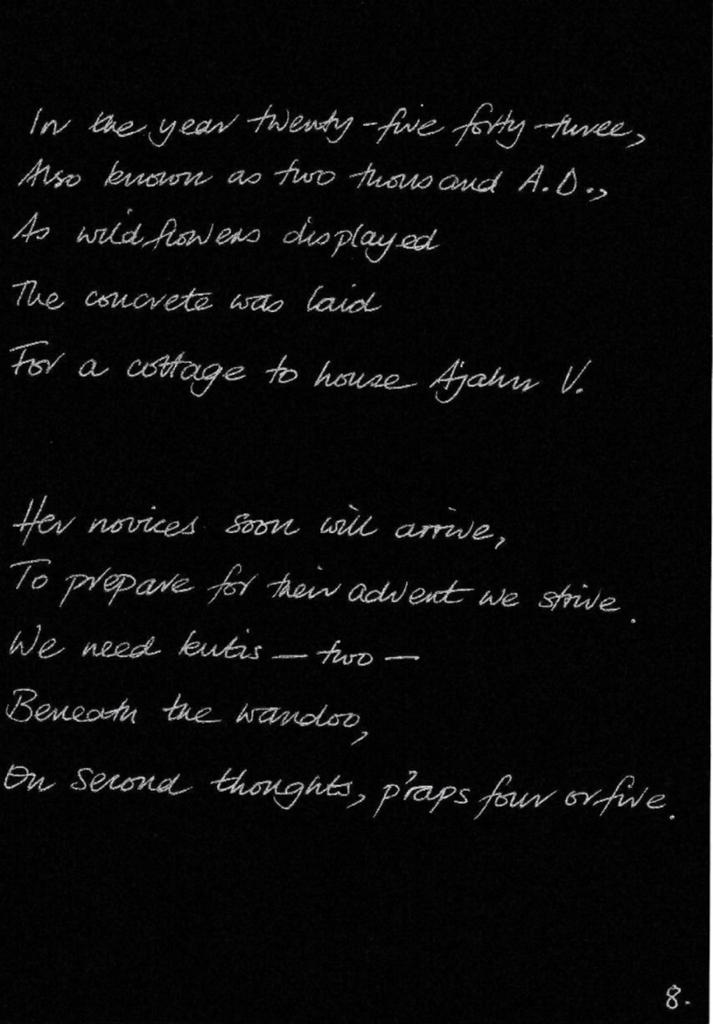 In the year twenty-five forty-three,
Also known as two thousand A.D.,
As wildflowers displayed
The concrete was laid
For a cottage to house Ajahn V.
Her novices soon will arrive,
To prepare for their advent we strive.
We need kutis – two –
Beneath the wandoo,
On second thoughts, p'raps four or five.
8.